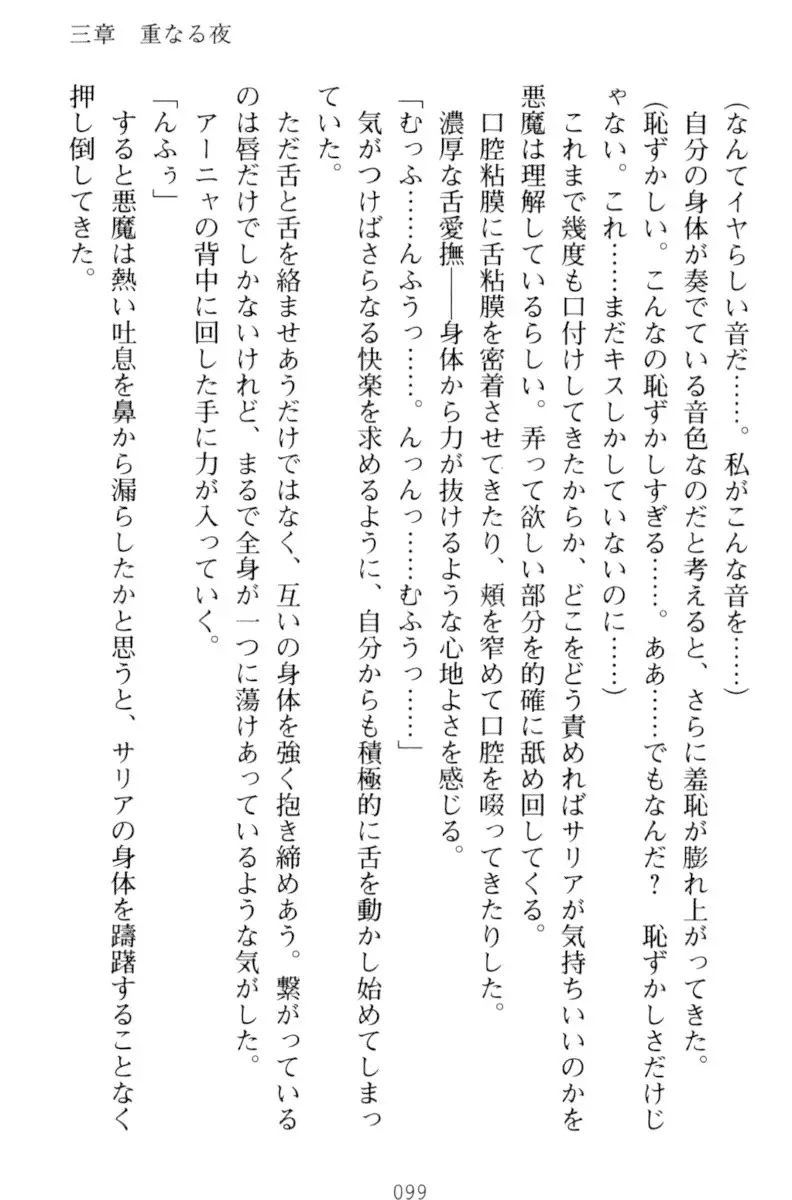 三章　重なる夜
（なんてイヤらしい音だ……。私がこんな音を……）
自分の身体が奏でている音色なのだと考えると、さらに羞恥が膨れ上がってきた。
（恥ずかしい。こんなの恥ずかしすぎる……。ああ……でもなんだ？　恥ずかしさだけじ
ゃない。これ……まだキスしかしていないのに……）
これまで幾度も口付けしてきたからか、どこをどう責めればサリアが気持ちいいのかを
悪魔は理解しているらしい。弄って欲しい部分を的確に舐め回してくる。
口腔粘膜に舌粘膜を密着させてきたり、頬を窄めて口腔を啜ってきたりした。
濃厚な舌愛撫――身体から力が抜けるような心地よさを感じる。
「むっふ……んふうっ……。んっんっ……むふうっ……」
気がつけばさらなる快楽を求めるように、自分からも積極的に舌を動かし始めてしまっ
ていた。
ただ舌と舌を絡ませあうだけではなく、互いの身体を強く抱き締めあう。繋がっている
のは唇だけでしかないけれど、まるで全身が一つに蕩けあっているような気がした。
アーニャの背中に回した手に力が入っていく。
「んふぅ」
すると悪魔は熱い吐息を鼻から漏らしたかと思うと、サリアの身体を躊躇することなく
押し倒してきた。
099